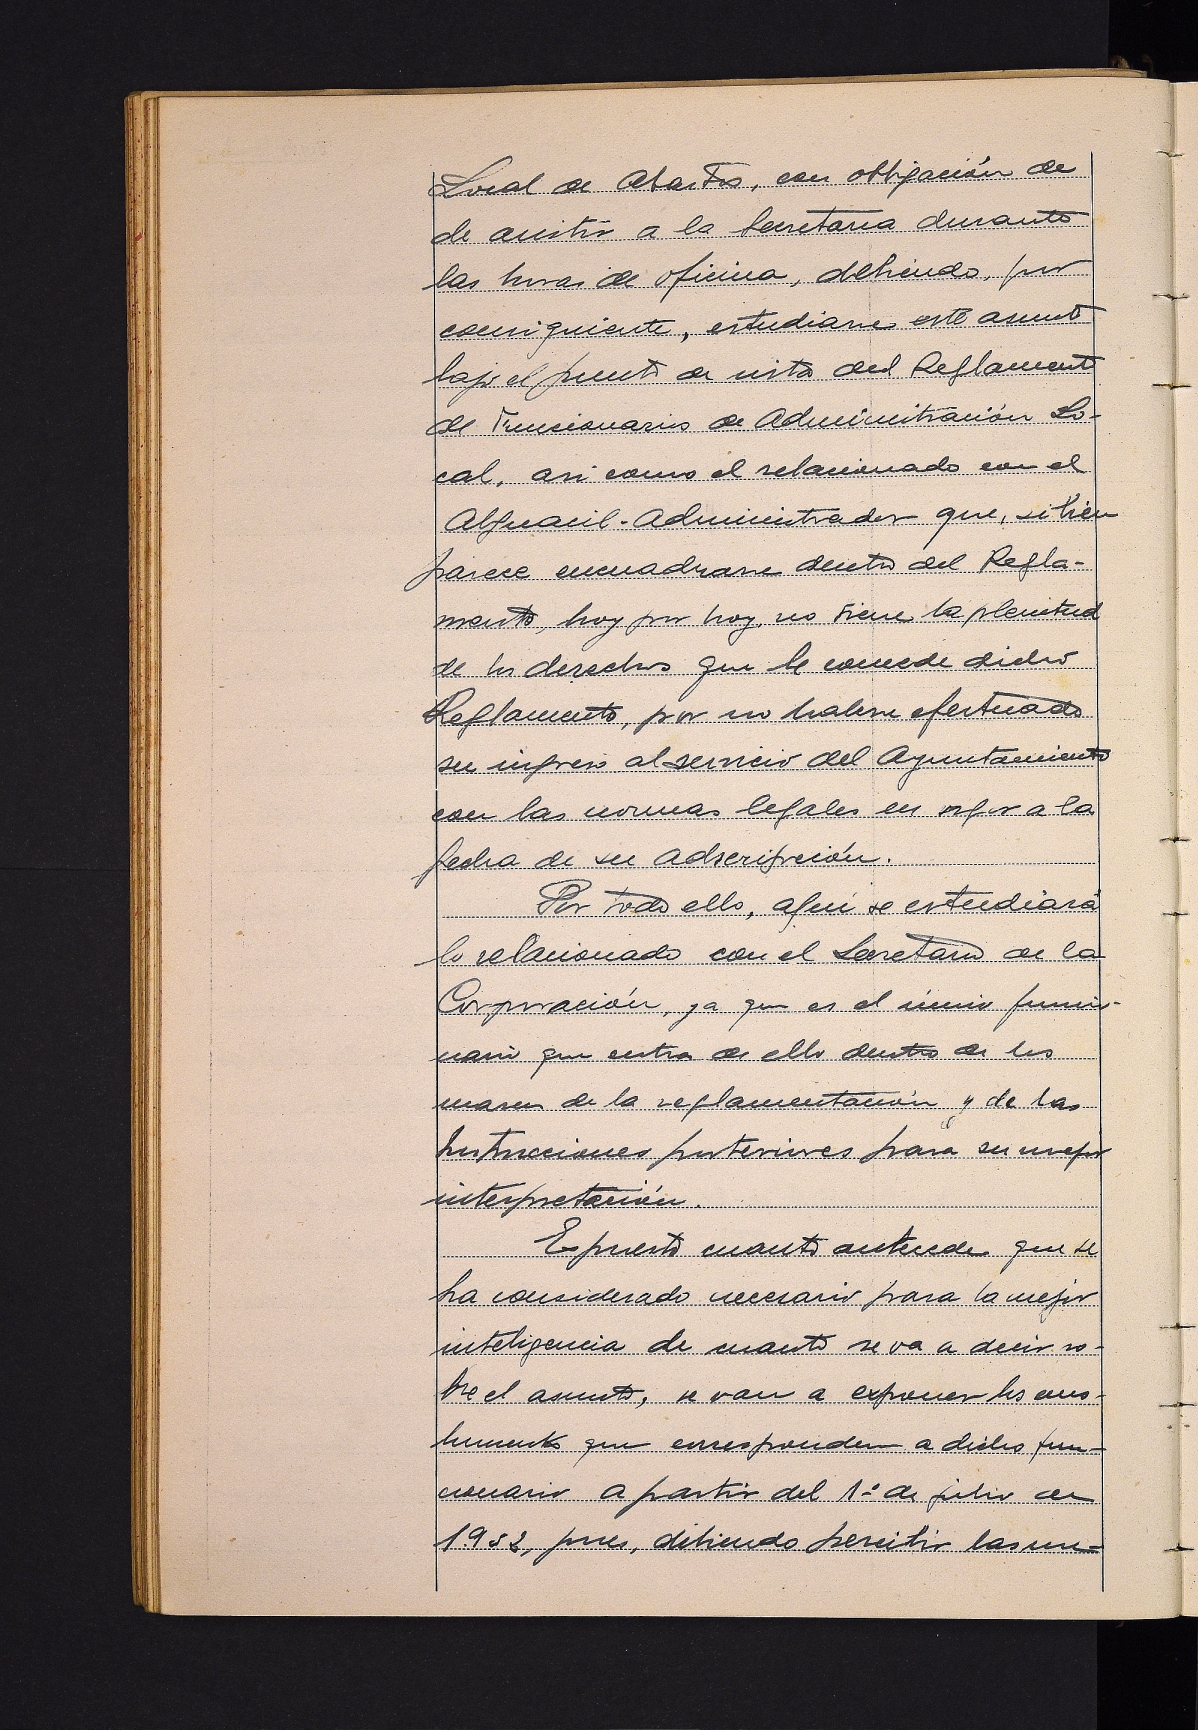 Local de Abastos, con obligación de
de asistir a la Secretaria durante
las horas de oficina, debiendo, por
consiguiente, estudiarse este asunto
bajo el punto de vista del Reglamento
de Funcionarios de Administración Lo-
cal, asi como el relacionado con el
Alguacil-Administrador que, si bien
parece encuadrarse dentro del Regla-
mento, hoy por hoy, no tiene la plenitud
de los derechos que le concede dicho
Reglamento, por no haberse efectuado
su ingreso al servicio del Ayuntamiento
con las normas legales en vigor a la
fecha de su adscripción.
Por todo ello, aqui se estudiará
lo relacionado con el Secretario de la
Corporación, ya que es el único funcio-
nario que entra de ello dentro de los
marcos de la reglamentación y de las
Instrucciones posteriores para su mejor
interpretación.
Expuesto cuanto antecede que se
ha considerado necesario para la mejor
inteligencia de cuanto se va a decir so-
bre el asunto, se van a exponer los emo-
lumentos que corresponden a dicho fun-
cionario a partir del 1º de julio de
1.952, pues, debiendo percibir las un-